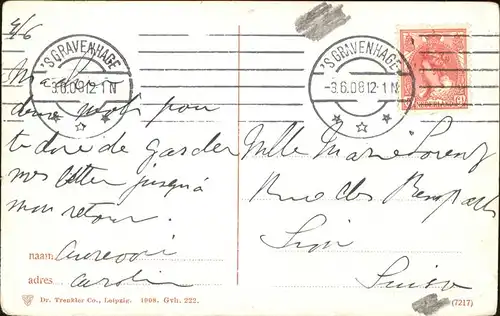 9/6
'S GRAVENHAGE
-9.6.08 12-1 N
'S GRAVENHAGE
-9.6.08 12-1 N
deux mots pour
te dire de garder
mes lettres jusqu'à
mon retour.
Mlle Marie Lorenz
Rue des
Sion
Suisse
naam
adres
Dr. Trenkler Co., Leipzig. 1908. Gvh. 222.
(7217)